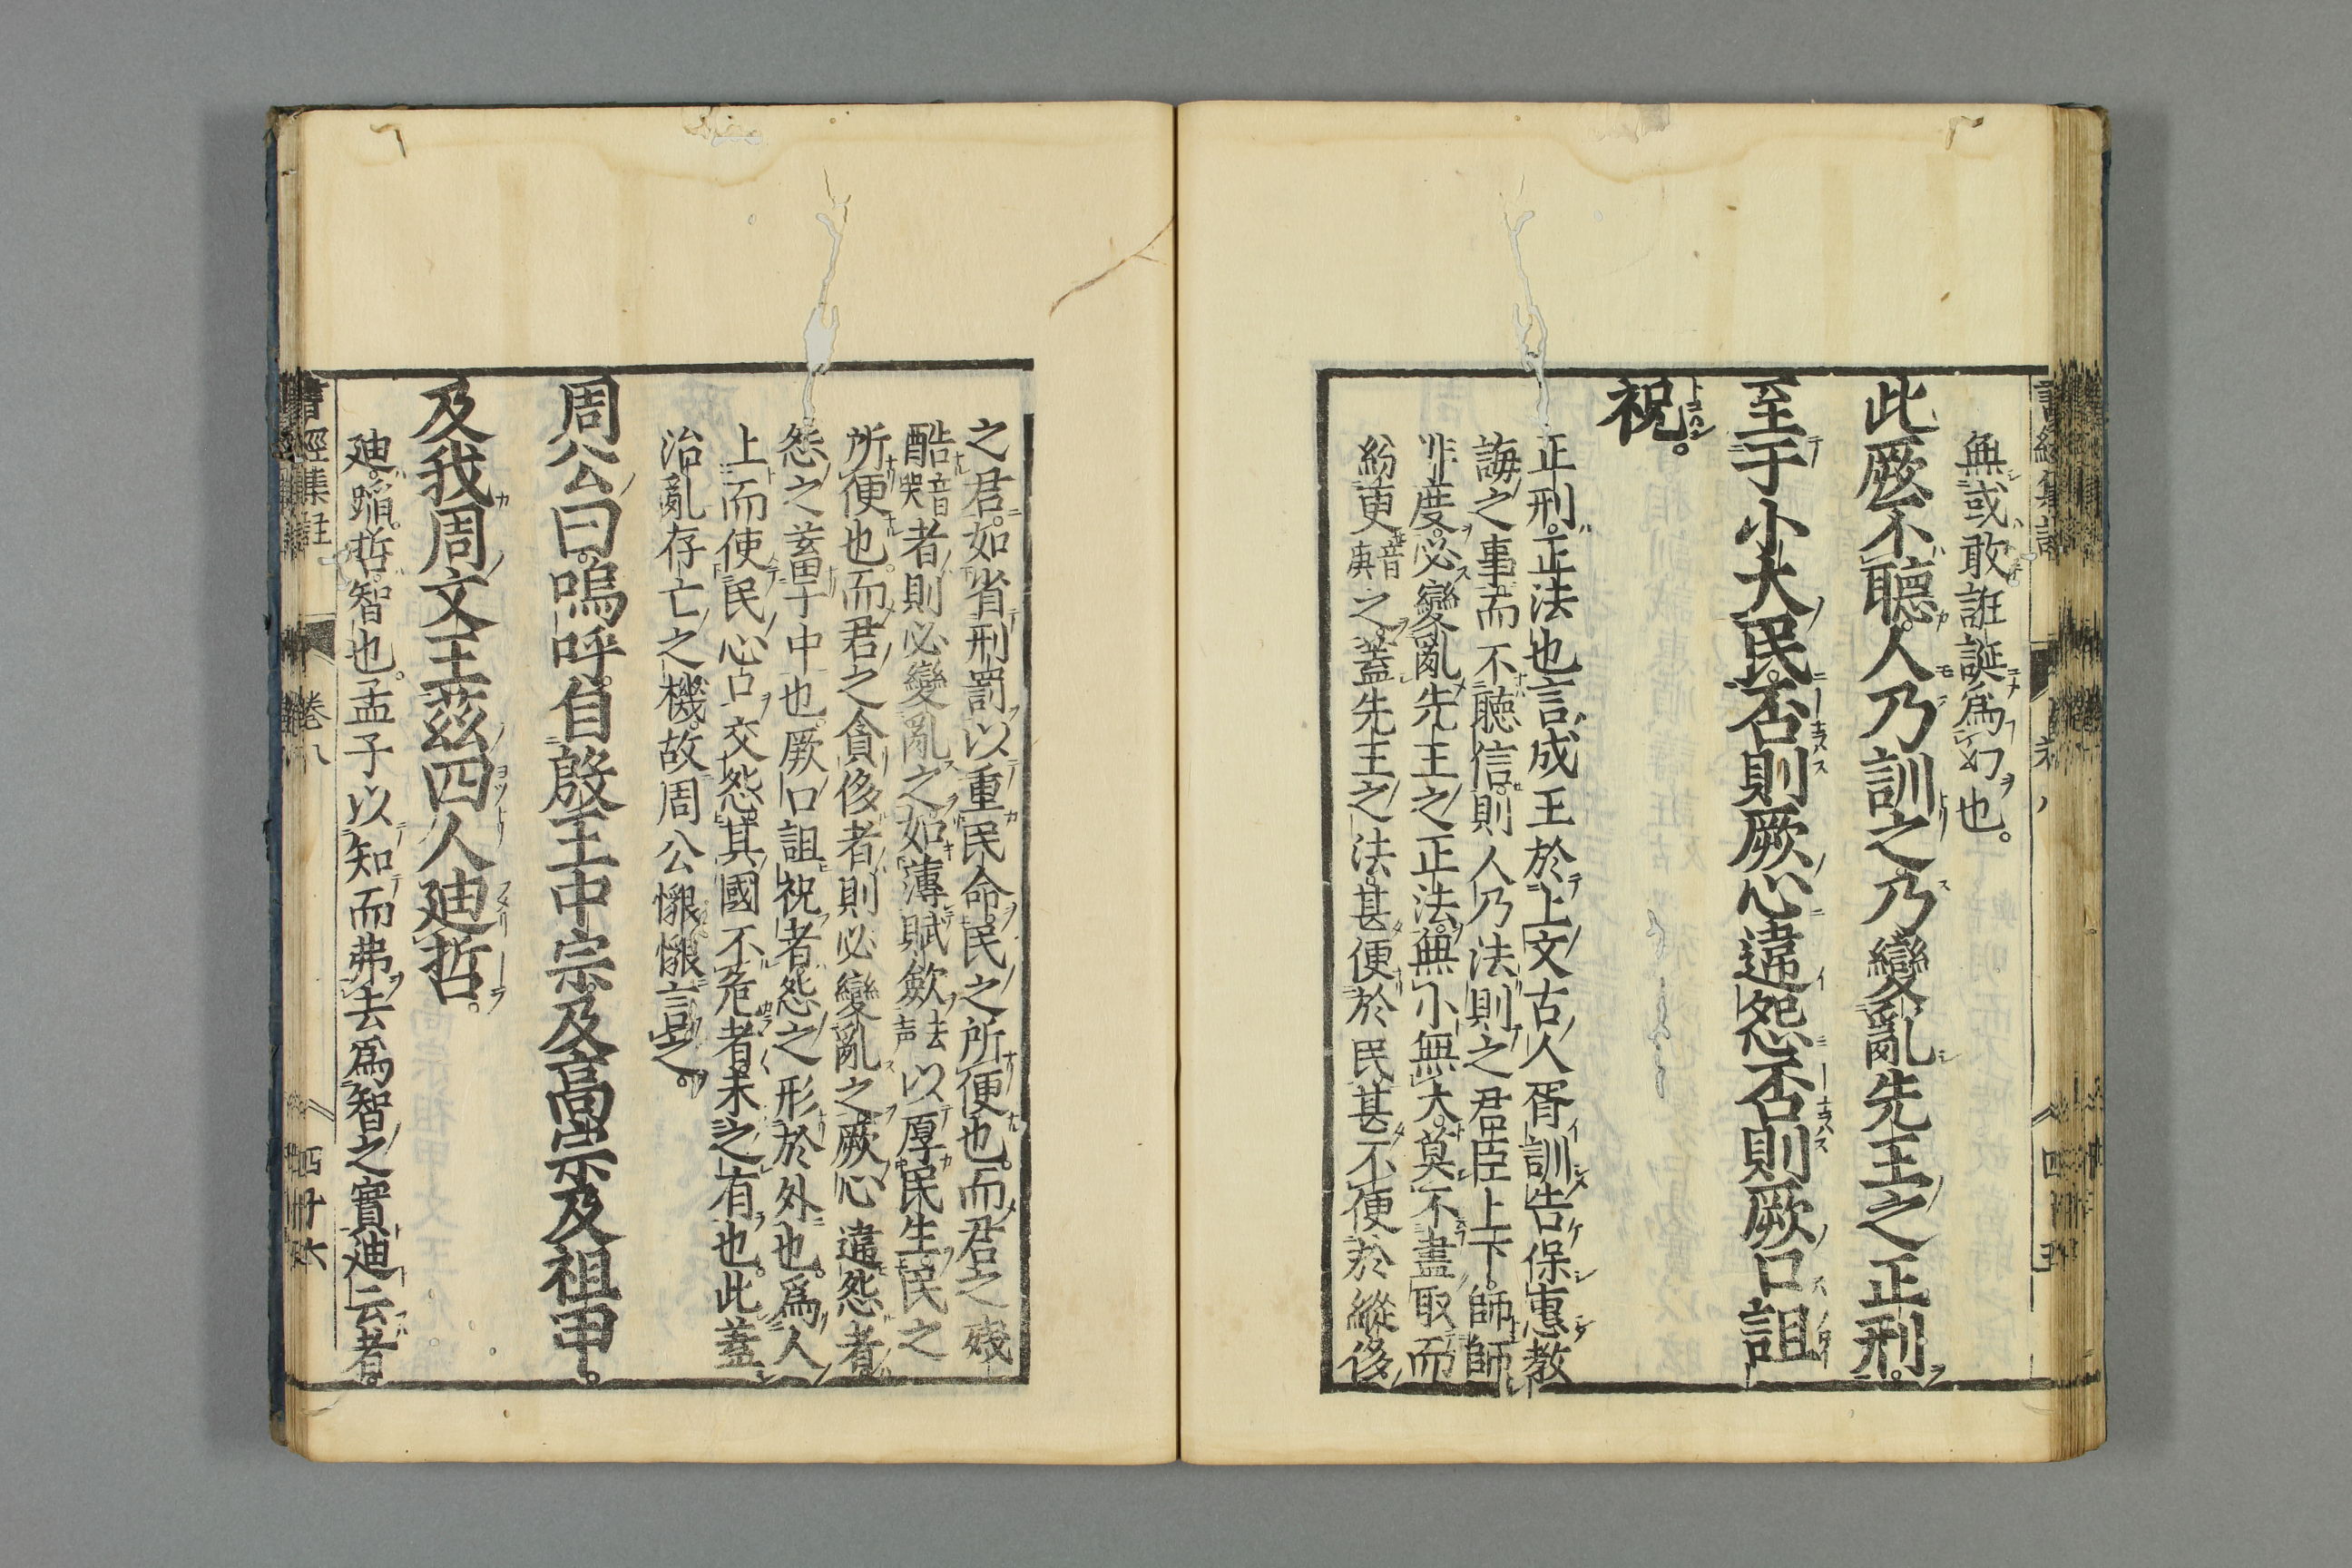 無或敢誑誕爲幻也。
此厥不聽。人乃訓之。乃變亂先王之正刑。
至于小大民。否則厥心違怨。否則厥口詛
祝。
正刑。正法也。言成王於上文古人胥訓告保惠教
誨之事而不聽信。則人乃法則之。君臣上下。師師
非度。必變亂先王之正法。無小無大。莫不盡取而
紛更音庚之。蓋先王之法。甚便於民。甚不便於縱侈
之君。如省刑罰以重民命。民之所便也。而君之殘
酷音哭者則必變亂之。如薄賦歛去声以厚民生。民之
所便也。而君之貪侈者則必變亂之。厥心違怨者。
怨之蓄于中也。厥口詛祝者。怨之形於外也。爲人
上而使民心口交怨。其國不危者。未之有也。此蓋
治亂存亡之機。故周公懇懇言之。
周公曰。嗚呼。自殷王中宗及高宗及祖甲。
及我周文王茲四人迪哲。
迪。蹈。哲。智也。孟子以知而弗去爲智之實。迪云者。
書經集註 卷八 四十六